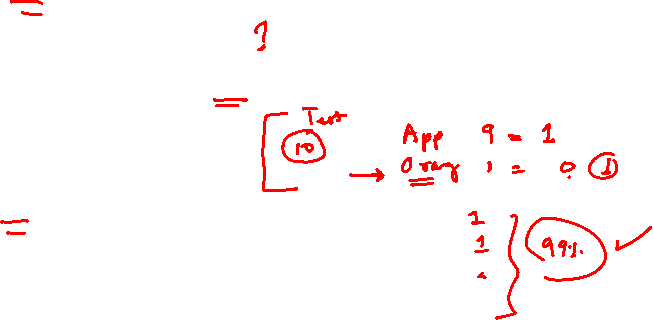 ?
Test
10
App 9 = 1
Orang 1 = 0 1
1
1
99%